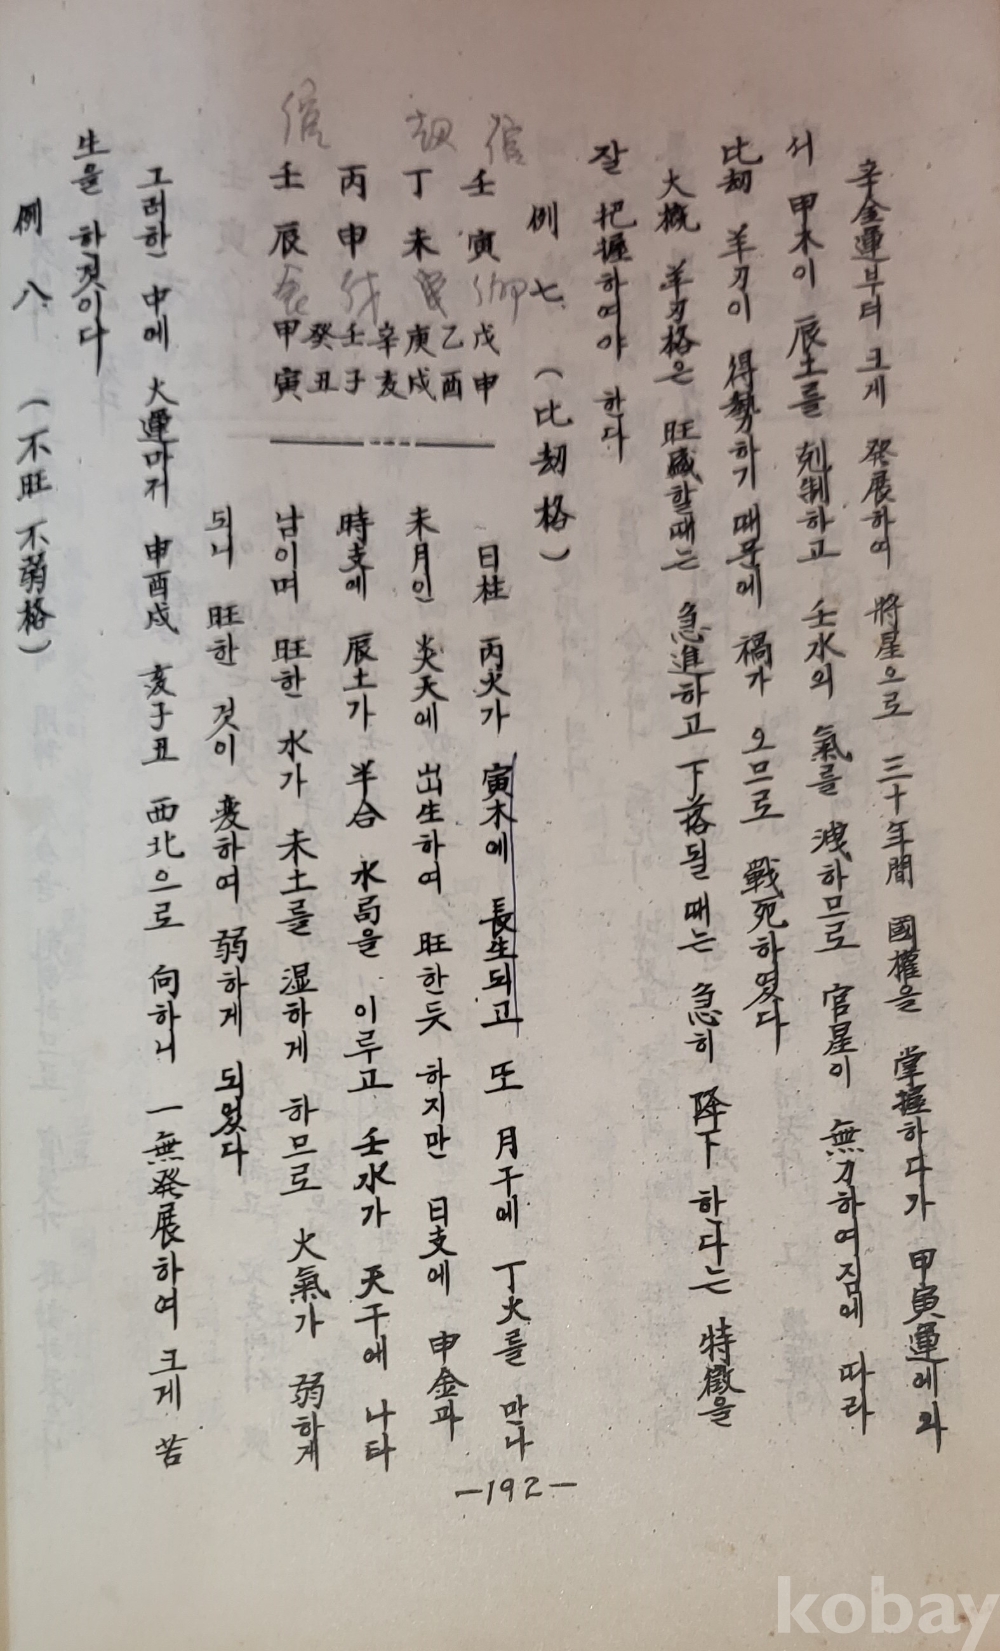 辛金運부터 크게 発展하여 將星으로 三十年間 國權을 掌握하다가 甲寅運에 와
서 甲木이 辰土를 剋制하고 壬水의 氣를 洩하므로 官星이 無力하여짐에 따라
比劫 羊刃이 得勢하기 때문에 禍가 오므로 戰死하였다
大槪 羊刃格은 旺盛할때는 急進하고 下落될때는 急히 降下 한다는 特徵을
잘 把握하여야 한다
例 七. (比劫格)
壬寅
丁未
丙申
壬辰
戊申
乙酉
庚戌
辛亥
壬子
癸丑
甲寅
日柱 丙火가 寅木에 長生되고 또 月干에 丁火를 만나
未月인 炎天에 出生하여 旺한듯 하지만 日支에 申金과
時支에 辰土가 半合 水局을 이루고 壬水가 天干에 나타
남이며 旺한 水가 未土를 湿하게 하므로 火氣가 弱하게
되니 旺한 것이 変하여 弱하게 되었다
그러한 中에 大運마저 申酉戌 亥子丑 西北으로 向하니 一無発展하여 크게 苦
生을 하것이다
例 八. (不旺 不弱格)
—192—
kobay